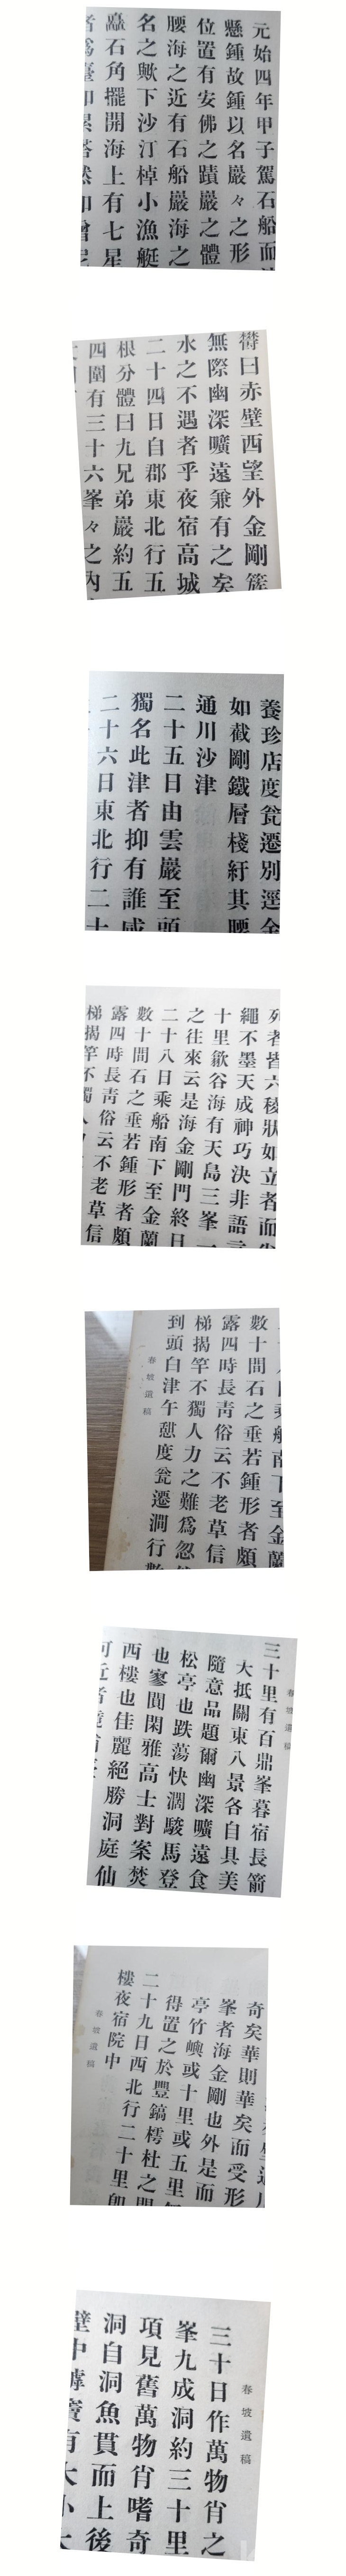 元始四年甲子駕石船而
懸鍾故鍾以名巖々之形
位置有安佛之蹟巖之體
腰海之近有石船巖海之
名之歟下沙汀棹小漁艇
纛石角擺開海上有七星
日赤壁西望外金剛簇
無際幽深曠遠兼有之矣
水之不遇者乎夜宿高城
二十四日自郡東北行五
根分體曰九兄弟巖約五
四圍有三十六峯々之內
養珍店度瓮遷別逕金
如截剛鐵層棧紆其腰
通川沙津
二十五日由雲巖至頭
獨名此津者抑有誰
二十六日東北行二十
列者皆六稜狀如立者而
繩不墨天成神巧決非語言
十里歙谷海有天島三峯一
之往來云是海金剛門終日
二十八日乘船南下至金蘭
數十間石之垂若鍾形者頗
露四時長靑俗云不老草信
梯揭竿不獨人力
乘船南下至金蘭
數十間石之垂若鍾形者頗
露四時長靑俗云不老草信
梯揭竿不獨人力之難爲忽
到頭白津午憩度瓮遷澗行數
春坡遺稿
春坡遺稿
三十里有百鼎峯暮宿長箭
大抵關東八景各自具美
隨意品題爾幽深曠遠食
松亭也跌蕩快濶駿馬登
也寥閴閑雅高士對案焚
西樓也佳麗絕勝洞庭仙
可近者
奇矣華則華矣而受形
峯者海金剛也外是而
亭竹嶼或十里或五里
得置之於豐鎬樗杜之間
二十九日西北行二十里卽
樓夜宿院中
春坡遺稿
春坡遺稿
三十日作萬物肖之
峯九成洞約三十里
項見舊萬物肖嗜奇
洞自洞魚貫而上後
壁中罅竇有大小大